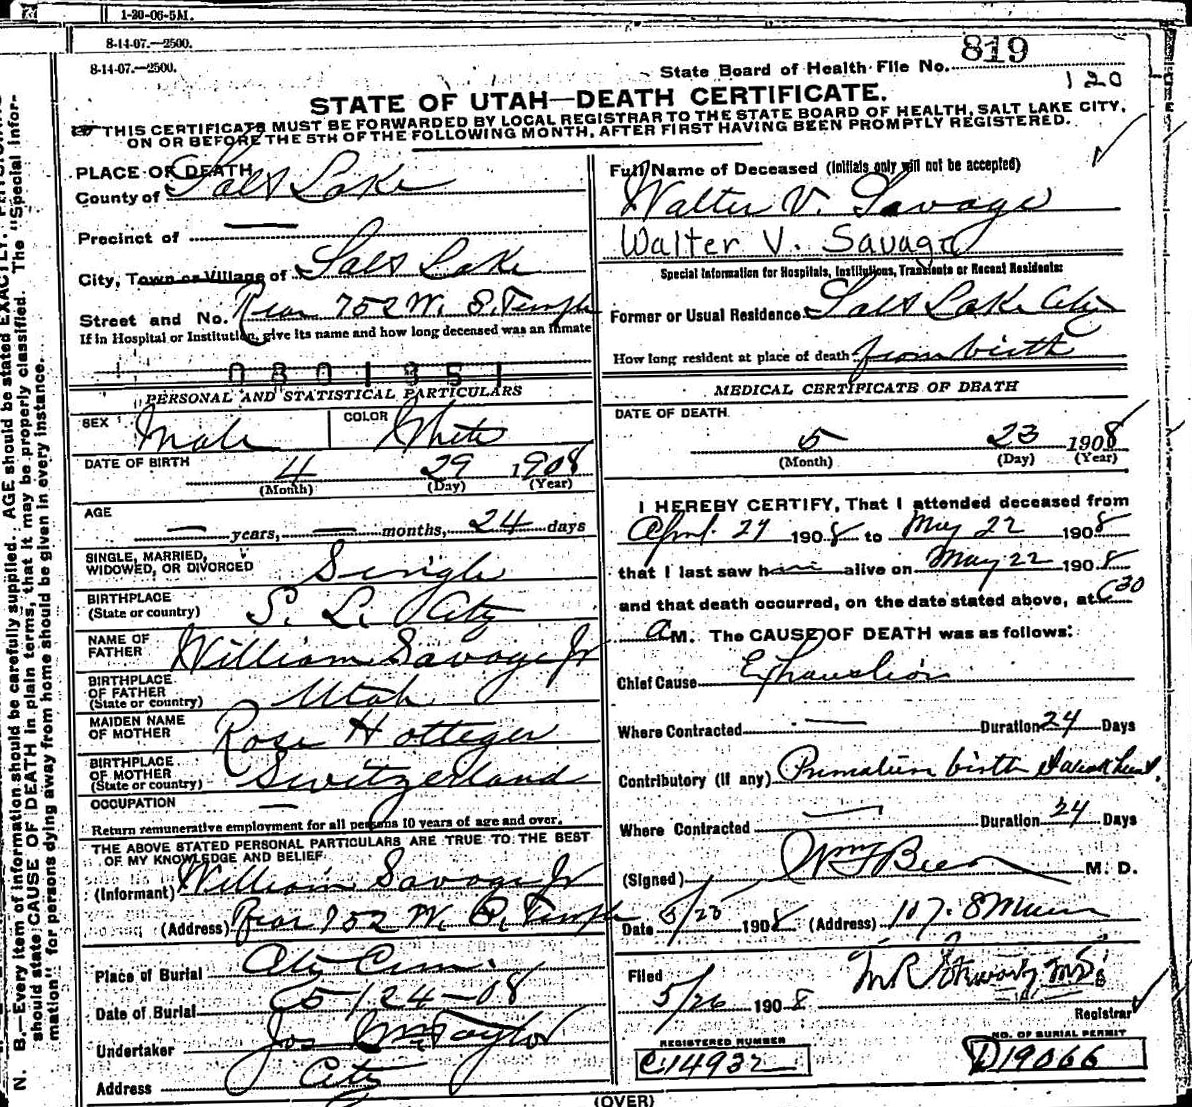 1-20-06-5M.
8-14-07.—2500.
8-14-07.—2500.
State Board of Health File No. 819
120
STATE OF UTAH—DEATH CERTIFICATE.
THIS CERTIFICATE MUST BE FORWARDED BY LOCAL REGISTRAR TO THE STATE BOARD OF HEALTH, SALT LAKE CITY,
ON OR BEFORE THE 5TH OF THE FOLLOWING MONTH, AFTER FIRST HAVING BEEN PROMPTLY REGISTERED.
PLACE OF DEATH
County of Salt Lake
Precinct of —
City, Town or Village of Salt Lake
Street and No. Rear 752 W. S. Temple
If in Hospital or Institution, give its name and how long deceased was an inmate
0801351
PERSONAL AND STATISTICAL PARTICULARS
SEX Male COLOR White
DATE OF BIRTH 4 29 1908
(Month) (Day) (Year)
AGE
— years, — months, 24 days
SINGLE, MARRIED,
WIDOWED, OR DIVORCED Single
BIRTHPLACE
(State or country) S. L. City
NAME OF
FATHER William Savage Jr
BIRTHPLACE
OF FATHER
(State or country) Utah
MAIDEN NAME
OF MOTHER Rose Hotteger
BIRTHPLACE
OF MOTHER
(State or country) Switzerland
OCCUPATION —
Return remunerative employment for all persons 10 years of age and over.
THE ABOVE STATED PERSONAL PARTICULARS ARE TRUE TO THE BEST
OF MY KNOWLEDGE AND BELIEF
(Informant) William Savage Jr
(Address) Rear 752 W. S. Temple
Place of Burial City Cem.
Date of Burial 5/24-08
Undertaker Jos Wm Taylor
Address City
Full Name of Deceased (Initials only will not be accepted)
Walter V. Savage
Walter V. Savage
Special Information for Hospitals, Institutions, Transients or Recent Residents:
Former or Usual Residence Salt Lake City
How long resident at place of death from birth
MEDICAL CERTIFICATE OF DEATH
DATE OF DEATH
5 23 1908
(Month) (Day) (Year)
I HEREBY CERTIFY, That I attended deceased from
April 29 1908 to May 22 1908
that I last saw him alive on May 22 1908
and that death occurred, on the date stated above, at 30
A M. The CAUSE OF DEATH was as follows:
Chief Cause Exhaustion
Where Contracted — Duration 24 Days
Contributory (if any) Premature birth
Where Contracted — Duration 24 Days
(Signed) Wm F Beer M. D.
Date 5/23 1908 (Address) 107. S Main
Filed
5/26 1908
Registrar
REGISTERED NUMBER
C14932
NO. OF BURIAL PERMIT
D19066
(OVER)
N. B.—Every item of information should be carefully supplied. AGE should be stated EXACTLY.
should state CAUSE OF DEATH in plain terms, that it may be properly classified. The "Special Infor-
mation" for persons dying away from home should be given in every instance.